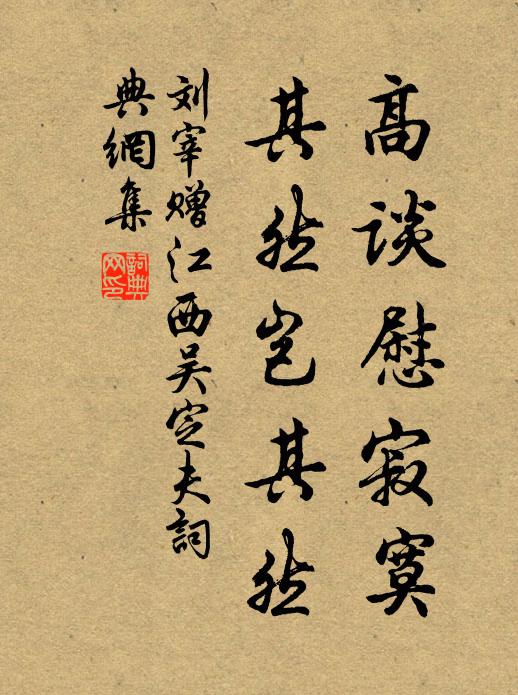 高谈慰寂寞
其然岂其然
刘宰赠江西吴定夫词
典网集
词典网印